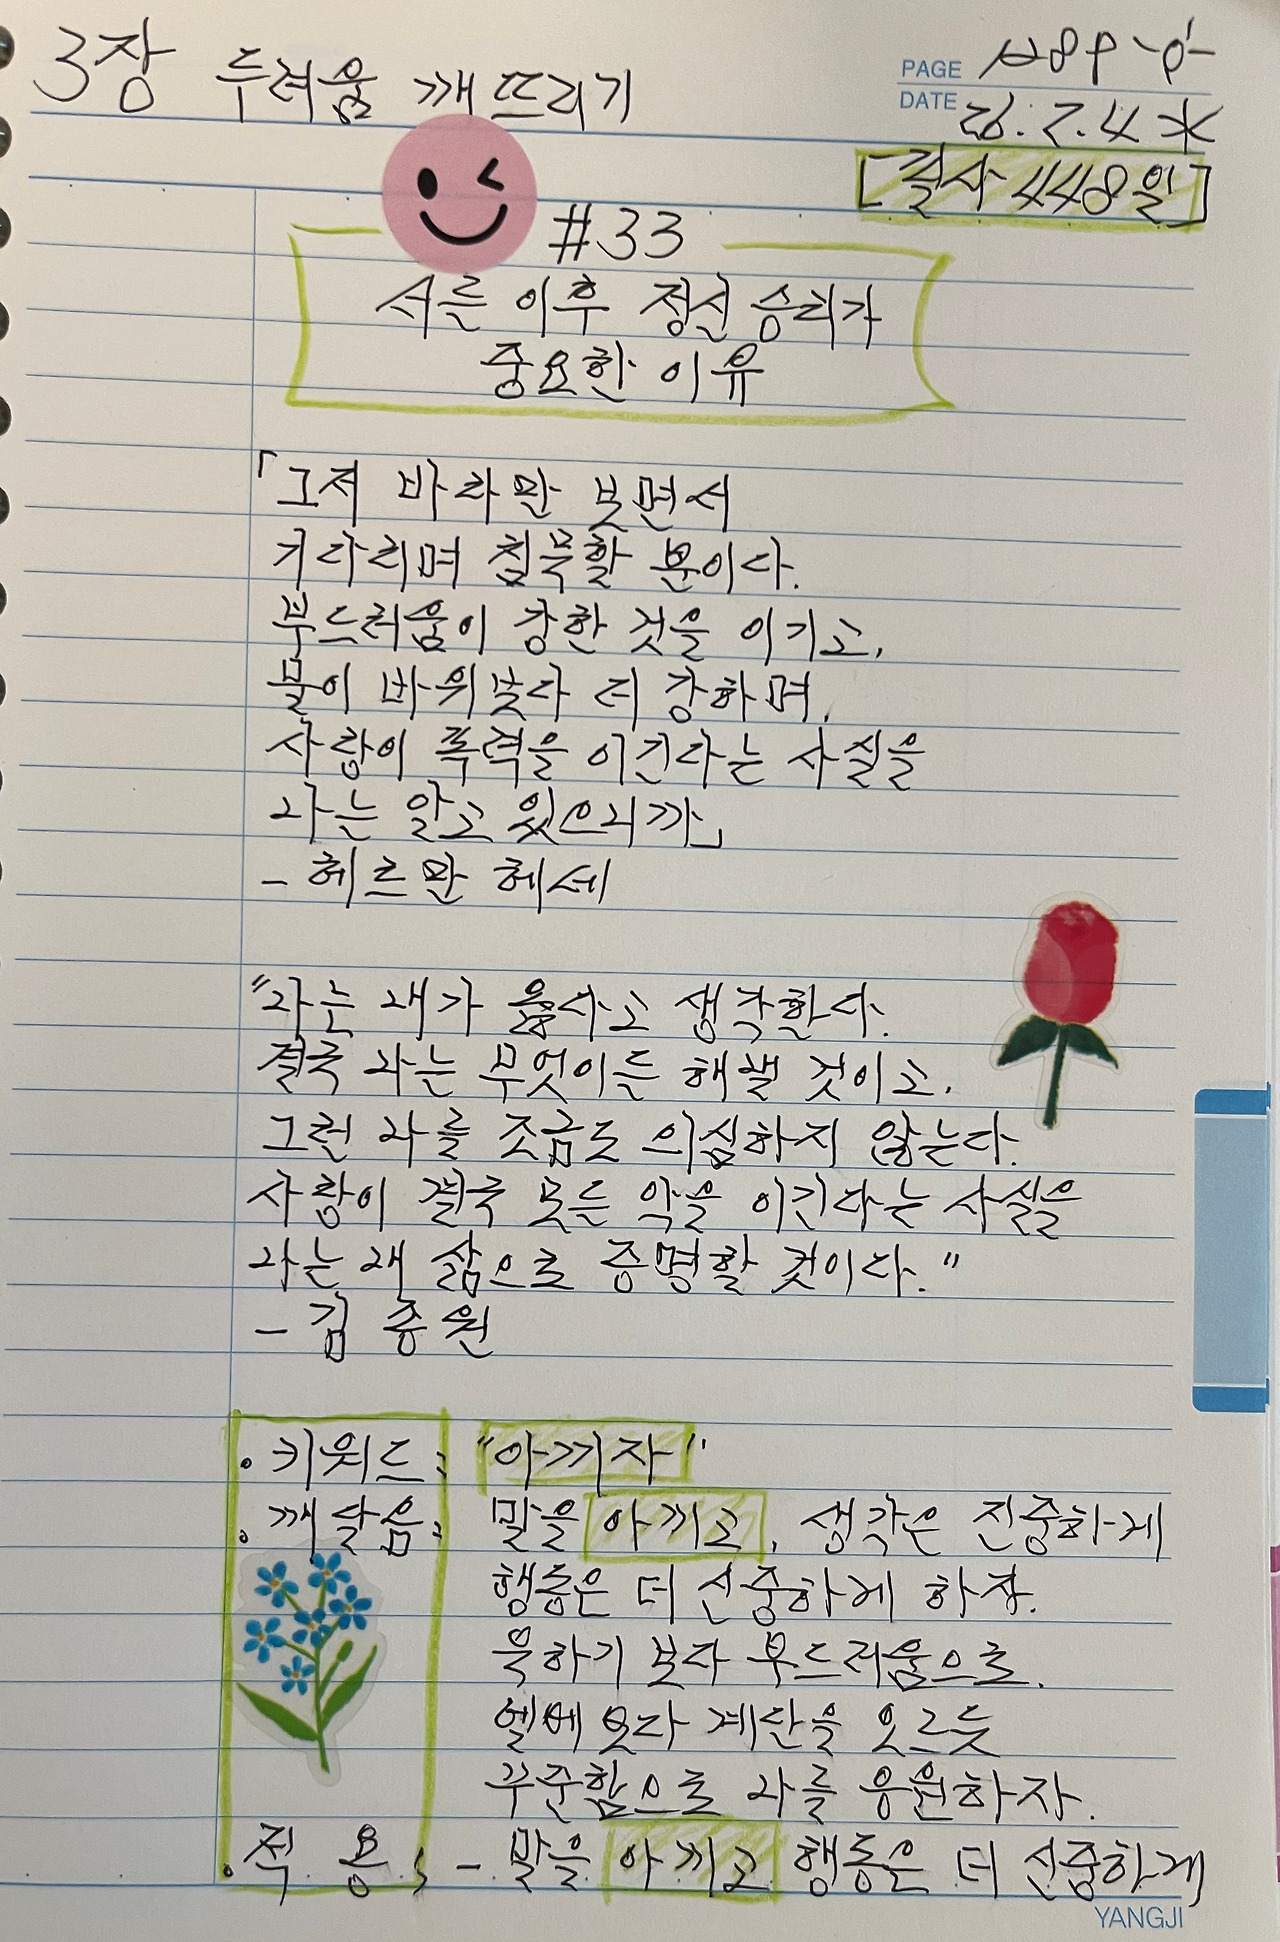 3장 두려움 깨뜨리기
PAGE
DATE 26. 2. 4 水
[필사 448일]
#33
서른 이후 정신 승리가
중요한 이유
「그저 바라만 보면서
기다리며 침묵할 뿐이다.
부드러움이 강한 것을 이기고,
물이 바위보다 더 강하며,
사랑이 폭력을 이긴다는 사실을
나는 알고 있으니까」
- 헤르만 헤세
"나는 내가 옳다고 생각한다.
결국 나는 무엇이든 해낼 것이고,
그런 나를 조금도 의심하지 않는다.
사랑이 결국 모든 악을 이긴다는 사실을
나는 내 삶으로 증명할 것이다."
- 김종원
• 키워드 : "아끼자"
• 깨달음 : 말을 아끼고, 생각은 진중하게
행동은 더 신중하게 하자.
욱하기 보다 부드러움으로,
엘베 보다 계단을 오르듯
꾸준함으로 나를 응원하자.
• 적용 : - 말을 아끼고 행동은 더 신중하게
YANGJI